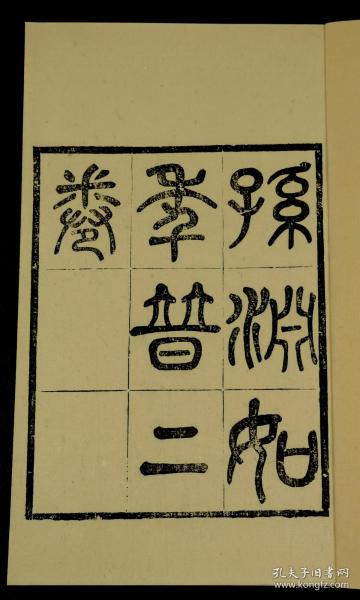 孫淵如
年譜二
卷
孔夫子旧书网
www.kongfz.com